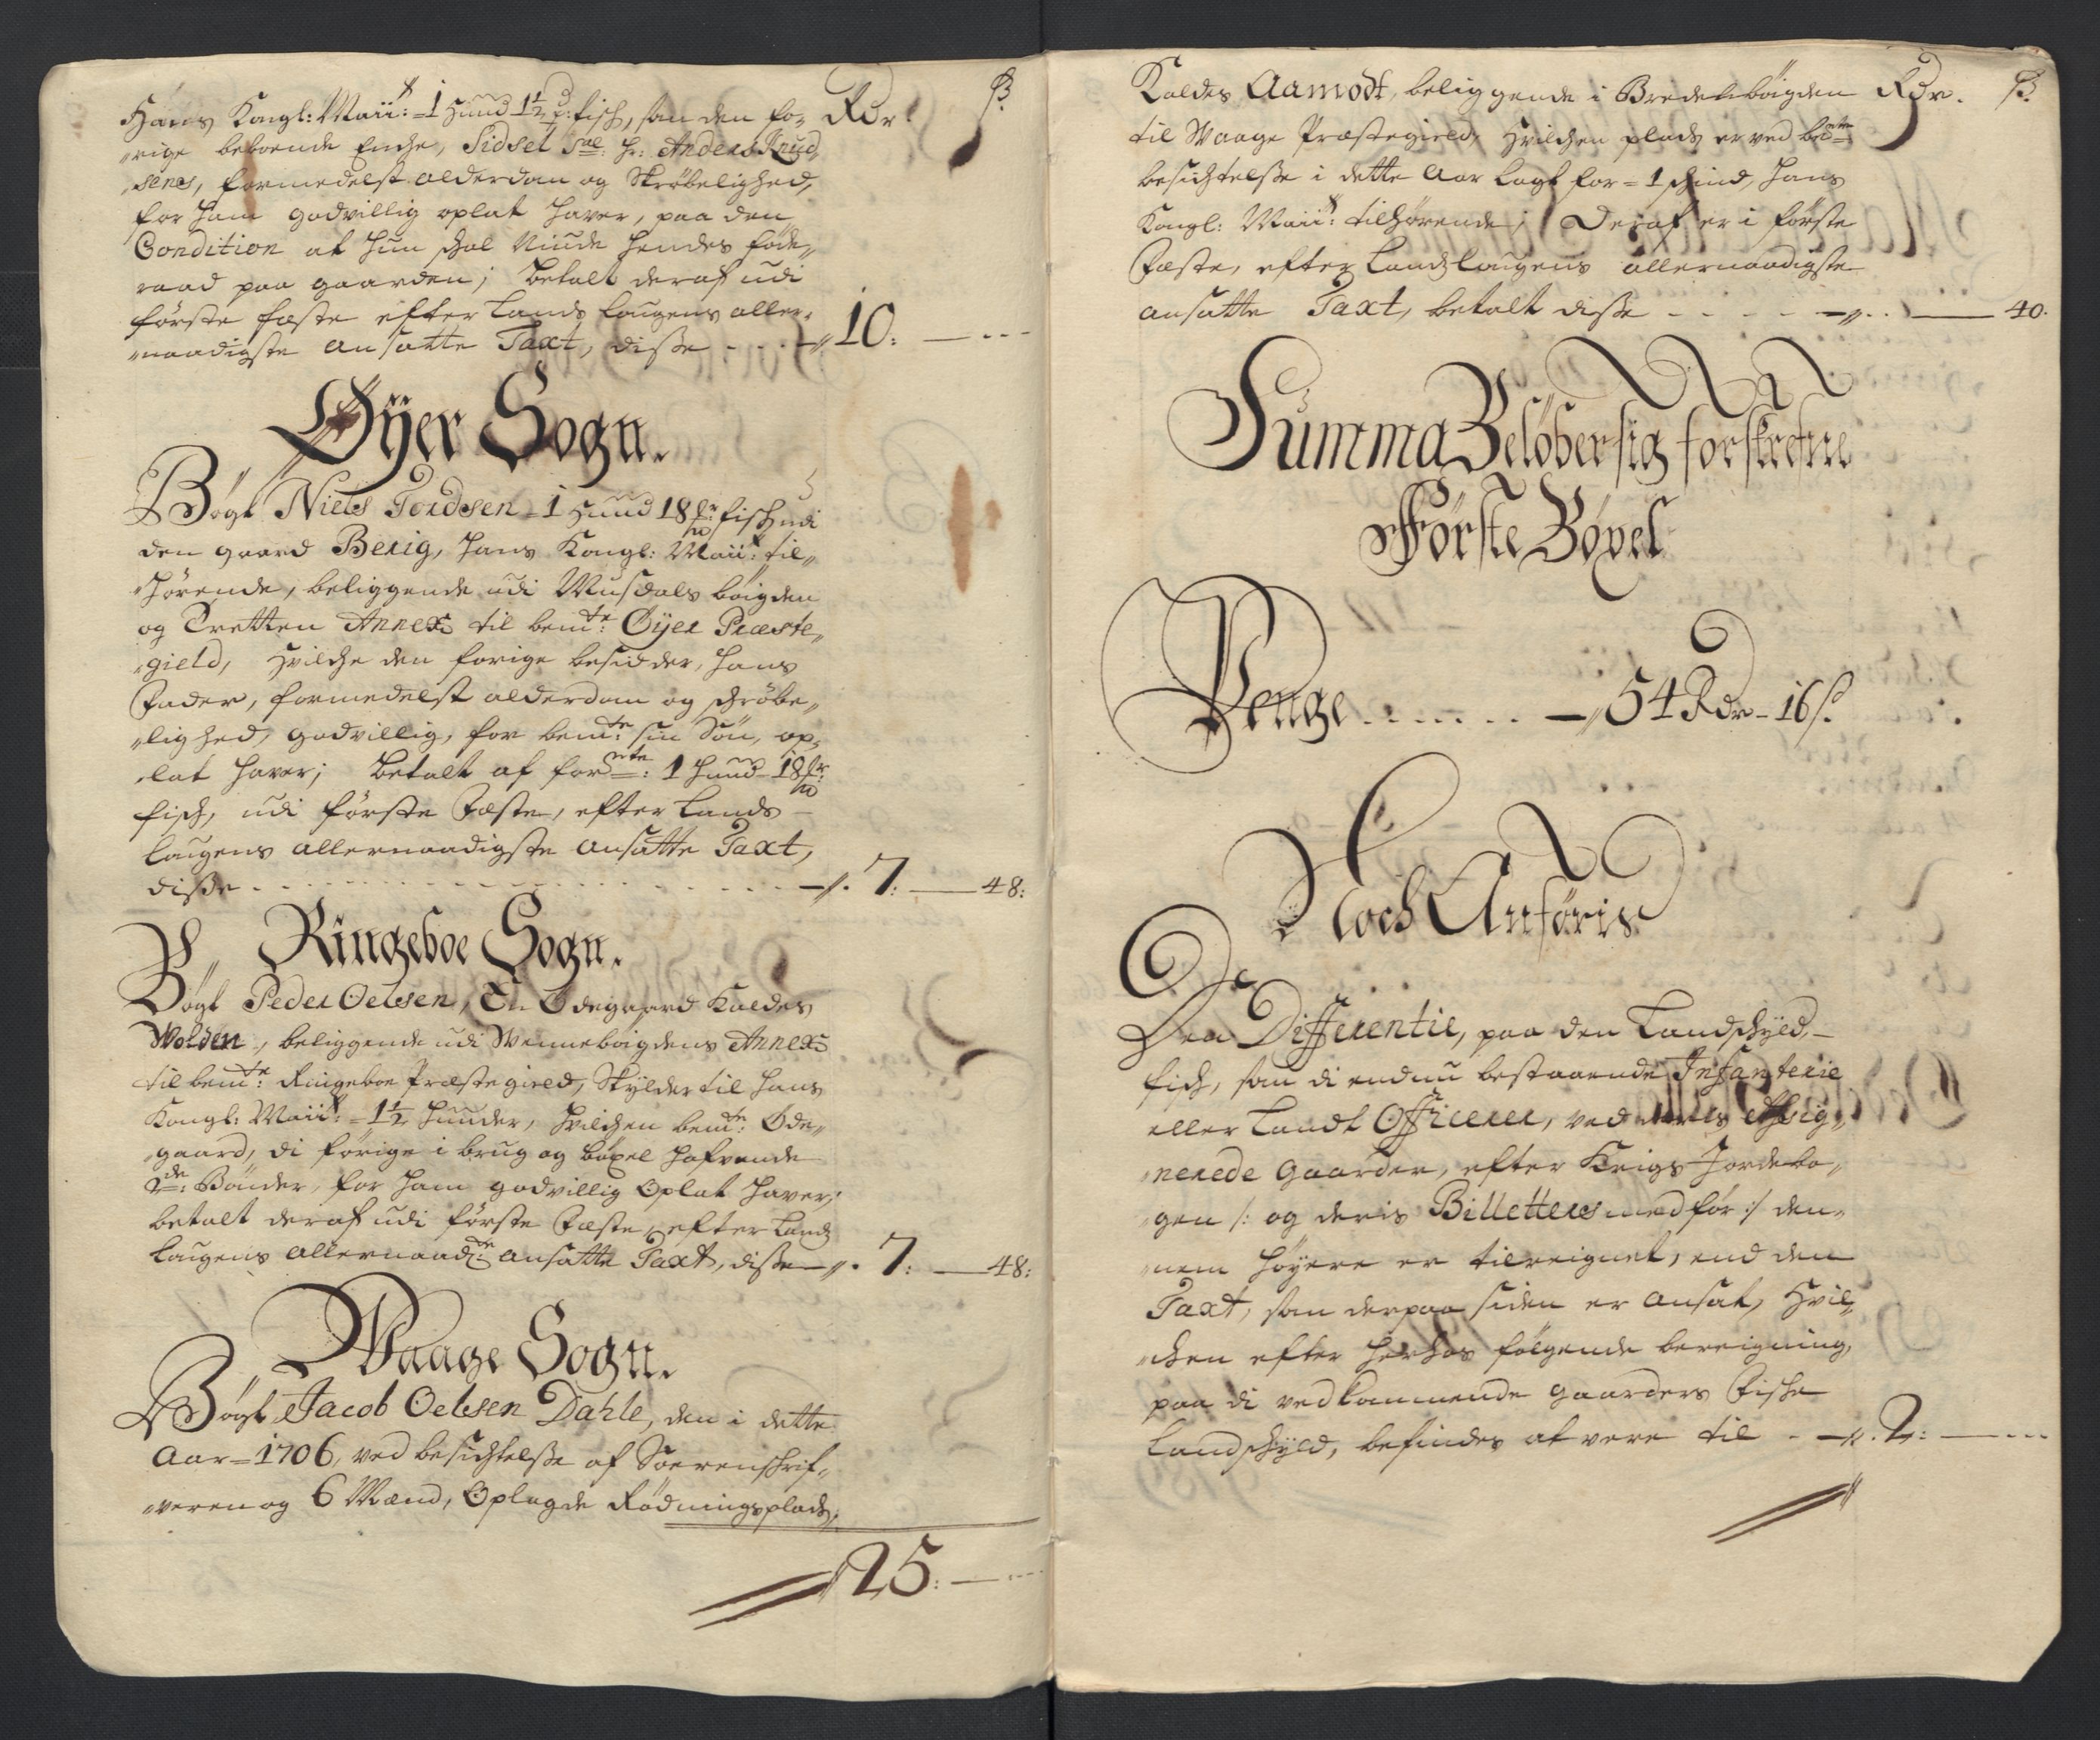 Hans Kongl: Maii:ˢ = 1 Hund 1½ ℔: fisch, som den fo- Rdr ß.
rige beboende Enche, Sidsel Sal: Hr: Anders Knud
sens, formedelst alderdom og Skrøbelighed,
for ham godvillig oplat haver, paa den
Condition at hun schal niude hendes føde„
raad paa gaarden; betalt deraf udi
første fæste efter Lands Laugens aller„
naadigste ansatte Taxt, disse - - - 10: — - - -
Øÿer Sogn.
Bögt Niels Tordsen = 1 Hund 18 fisch udi
den gaard Berig, Hans Kongl: Maii: til„
hørende, beliggende udi Musdals bøigden
og Tretten Annex til bemte: Øÿer Præste„
gield, Hvilche den forige besidder, hans
Fader, formedelst alderdom og schrøbe„
lighed, godvillig, for bemte: sin Søn, op„
lat haver; betalt af for 1 hund 18
fisch, udi første Fæste, efter Lands
Laugens allernaadigste ansatte Taxt,
disse - - - - - 7: — 48:
Ringeboe Sogn.
Bögt Peder Oelsen, En Ødegaard Kaldes
Wolden, beliggende udi Wennebøigdens Annex
til bemte: Ringeboe Præstegield, Skylder til Hans
Kongl: Maii: = 1½ Hunder, Hvilchen bemte: Øde„
gaard, di forige i brug og bøxel hafvende
2de: Bönder, for ham godvillig Oplat haver;
betalt deraf udi første Fæste, efter Landz
Laugens allernaadte: ansatte Taxt, disse 7: — 48:
Waage Sogn.
Bögt Jacob Oelsen Dahle, den i dette
Aar = 1706, ved besichtelsse af Soerenschrif„
veren og 6 Mænd, Oplagde Rødningsplads,
25: — - - -
Kaldes Aamodt, beliggende i Bredebøigden Rdr. ß.
til Waage Præstegield, Hvilchen plads er ved bemte
besichtelsse i dette Aar lagt for = 1 schind, Hans
Kongl: Maii: tilhørende; Deraf er i første
Fæste, efter Landzlaugens allernaadigste
ansatte Taxt, betalt disse - - - - — 40.
Summa Beløber sig forskrefne
Første Bøxel
Penge . . . . . . — 54 Rdr – 16 ß.
Noch Anføris
Den Differentie, paa den Landschÿld„
fisch, som di endnu bestaaende Infanterie
eller Landt Officerer, ved deris Assig„
nerede Gaarder, efter Krigs Jordebo„
gen /: og deris Billetter medfør :/ den„
nem høÿere er tilreignet, end den
Taxt, som derpaa siden er ansat, Hvil„
chen efter herhos følgende bereigning,
paa di vedkommende gaarders Fische
Landschÿld, befindes at være til - 2: — - - -